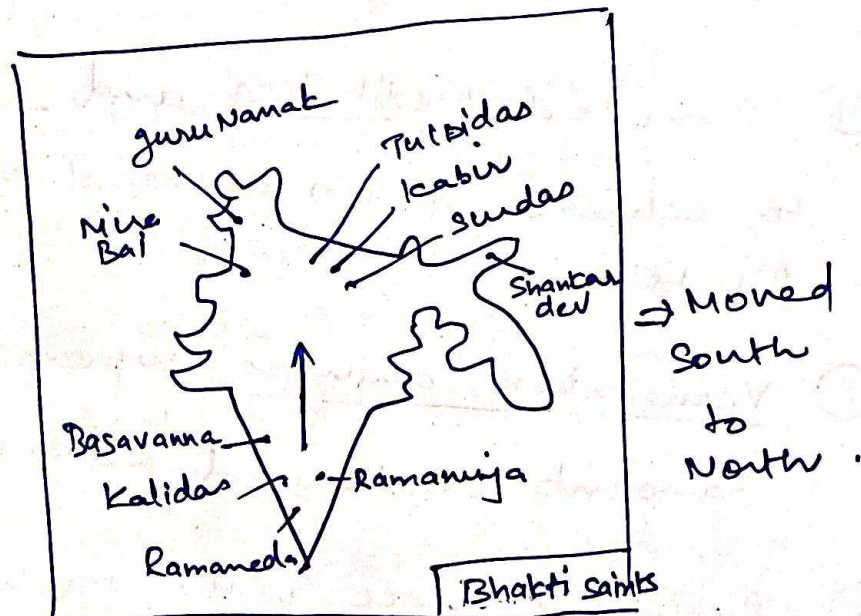 guru Nanak
Tulsidas
Kabir
Surdas
Mira
Bai
Shankar
dev
⇒ Moved
South
to
North.
Basavanna
Kalidas
Ramanuja
Ramaneda
Bhakti saints